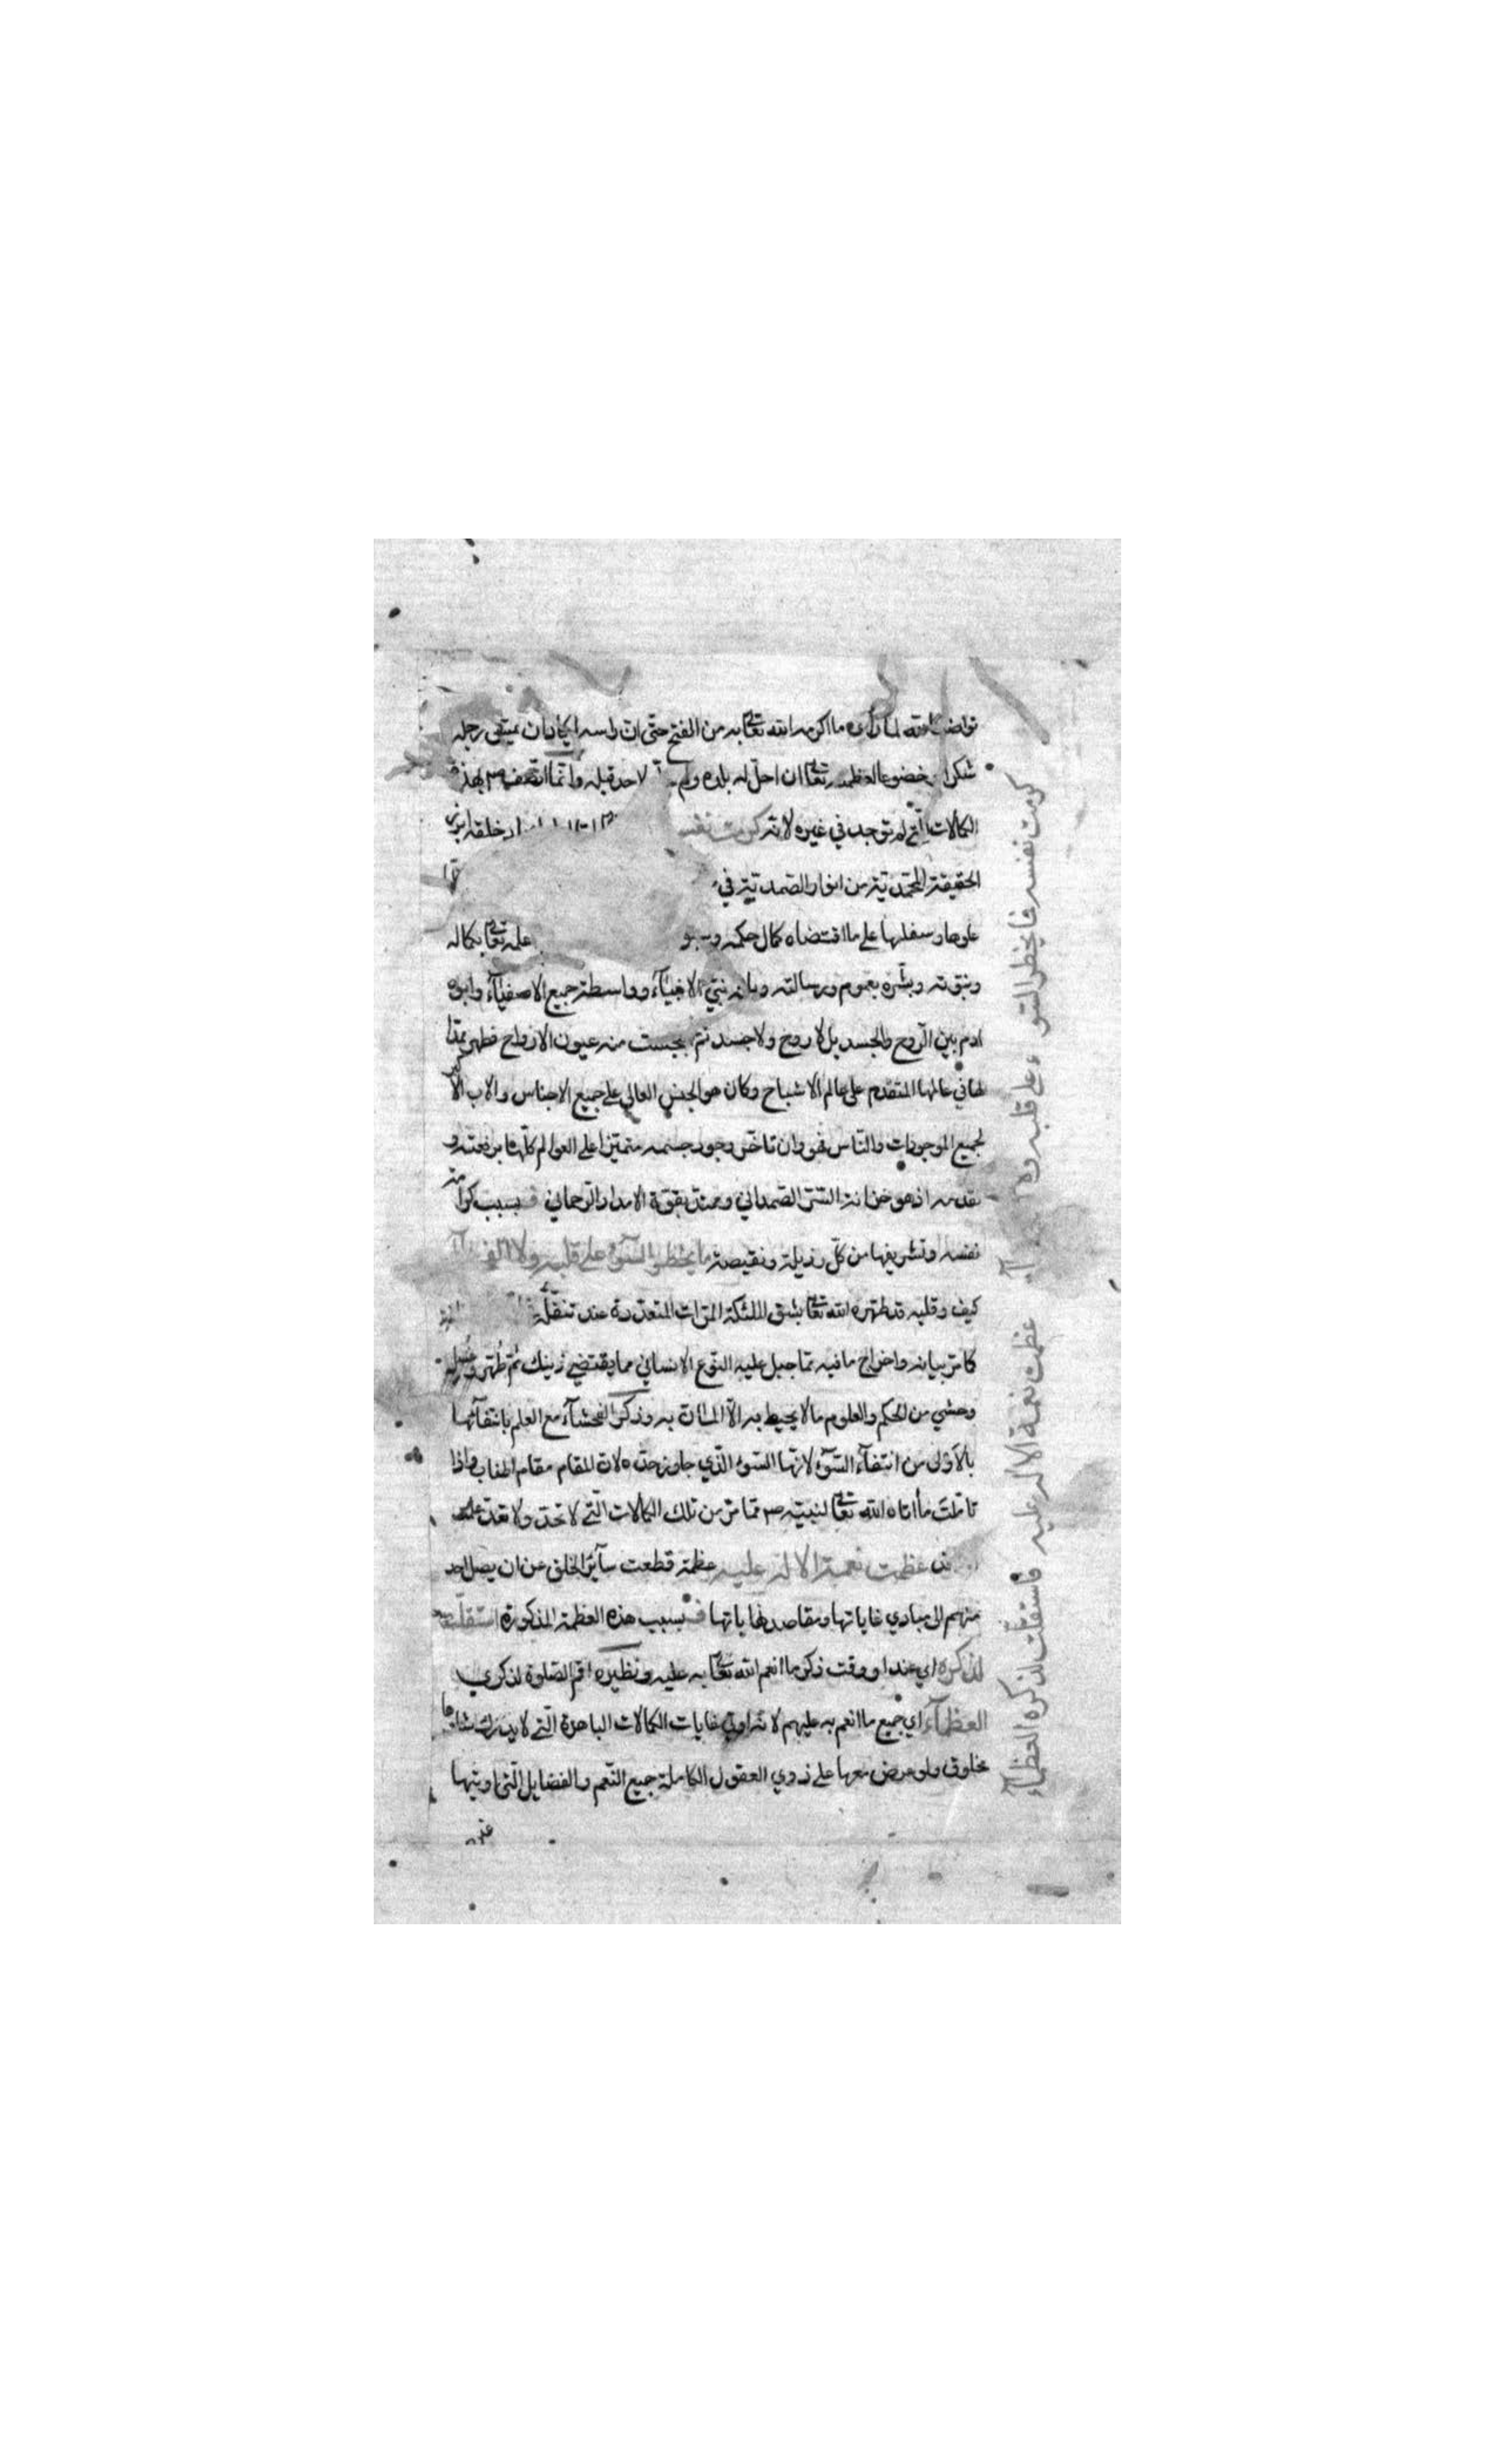 تواضعا منه لما رأى ما اكرمه الله تعا به من الفتح حتى ان راسه ليكاد ان يمس رجله
شكرا وخضوعا لعظمته تعا ان احل له بلده ولم لاحد قبله وانما اتصف صم بهذه
الكمالات التي لم توجد في غيره لانه كرمت نفسه خلقه ابرز
الحقيقة المحمدية من انوار الصمدية في
علوها وسفلها على ما اقتضاه كمال حكمه علمه تعا بكماله
ونبوته وبشره بعموم ورسالته وبانه نبي الانبيآء وواسطة جميع الاصفيآء وابوه
ادم بين الروح والجسد بل لا روح ولا جسد ثم بجست منه عيون الارواح فظهر ممدا
لها في عالمها المتقدم على عالم الاشباح وكان هو الجنس العالي على جميع الاجناس والاب الاكبر
لجميع الموجودات والناس فهو وان تاخر وجود جسمه متميز على العوالم كلها برفعته و
تقدمه اذ هو خزانة السر الصمداني ومحتد بقوة الامداد الرحماني فبسبب كرامة
نفسه وتشريفها من كل رذيلة ونقيصة ما يخطر السوء على قلبه ولا الفحشآ
كيف وقلبه قد طهره الله تعا بشق الملئكة المرات المتعددة عند تنقله
كما مر بيانه واخراج ما فيه مما جبل عليه النوع الانساني مما يقتضي ذينك ثم طهر وغسل
وحشي من الحكم والعلوم ما لا يحيط به الا المان به وذكر الفحشآء مع العلم بانتفآئها
بالاولى من انتفآء السوء لانها السوء الذي جاوز حده لان المقام مقام اطناب واذا
تاملت ما اتاه الله تعا لنبيه صم مما مر من تلك الكمالات التي لا تحد ولا تعد علمت
عظمت نعمة الاله عليه عظمة قطعت سآئر الخلق عن ان يصل احد
منهم الى مبادي غاياتها ومقاصد نهاياتها فبسبب هذه العظمة المذكورة استقلت
لذكره اي عند او وقت ذكر ما انعم الله تعا به عليه ونظيره اقم الصلوة لذكري
العظمآء اي جميع ما انعم به عليهم لانه اوتي غايات الكمالات الباهرة التي لا يدرك شاوها
مخلوق ولو عرض معها على ذوي العقول الكاملة جميع النعم والفضايل التي اوتيها
غيره
كرمت نفسه فما يخطر السوء على قلبه ولا
عظمت نعمة الاله عليه فاستقلت لذكره العظمآء